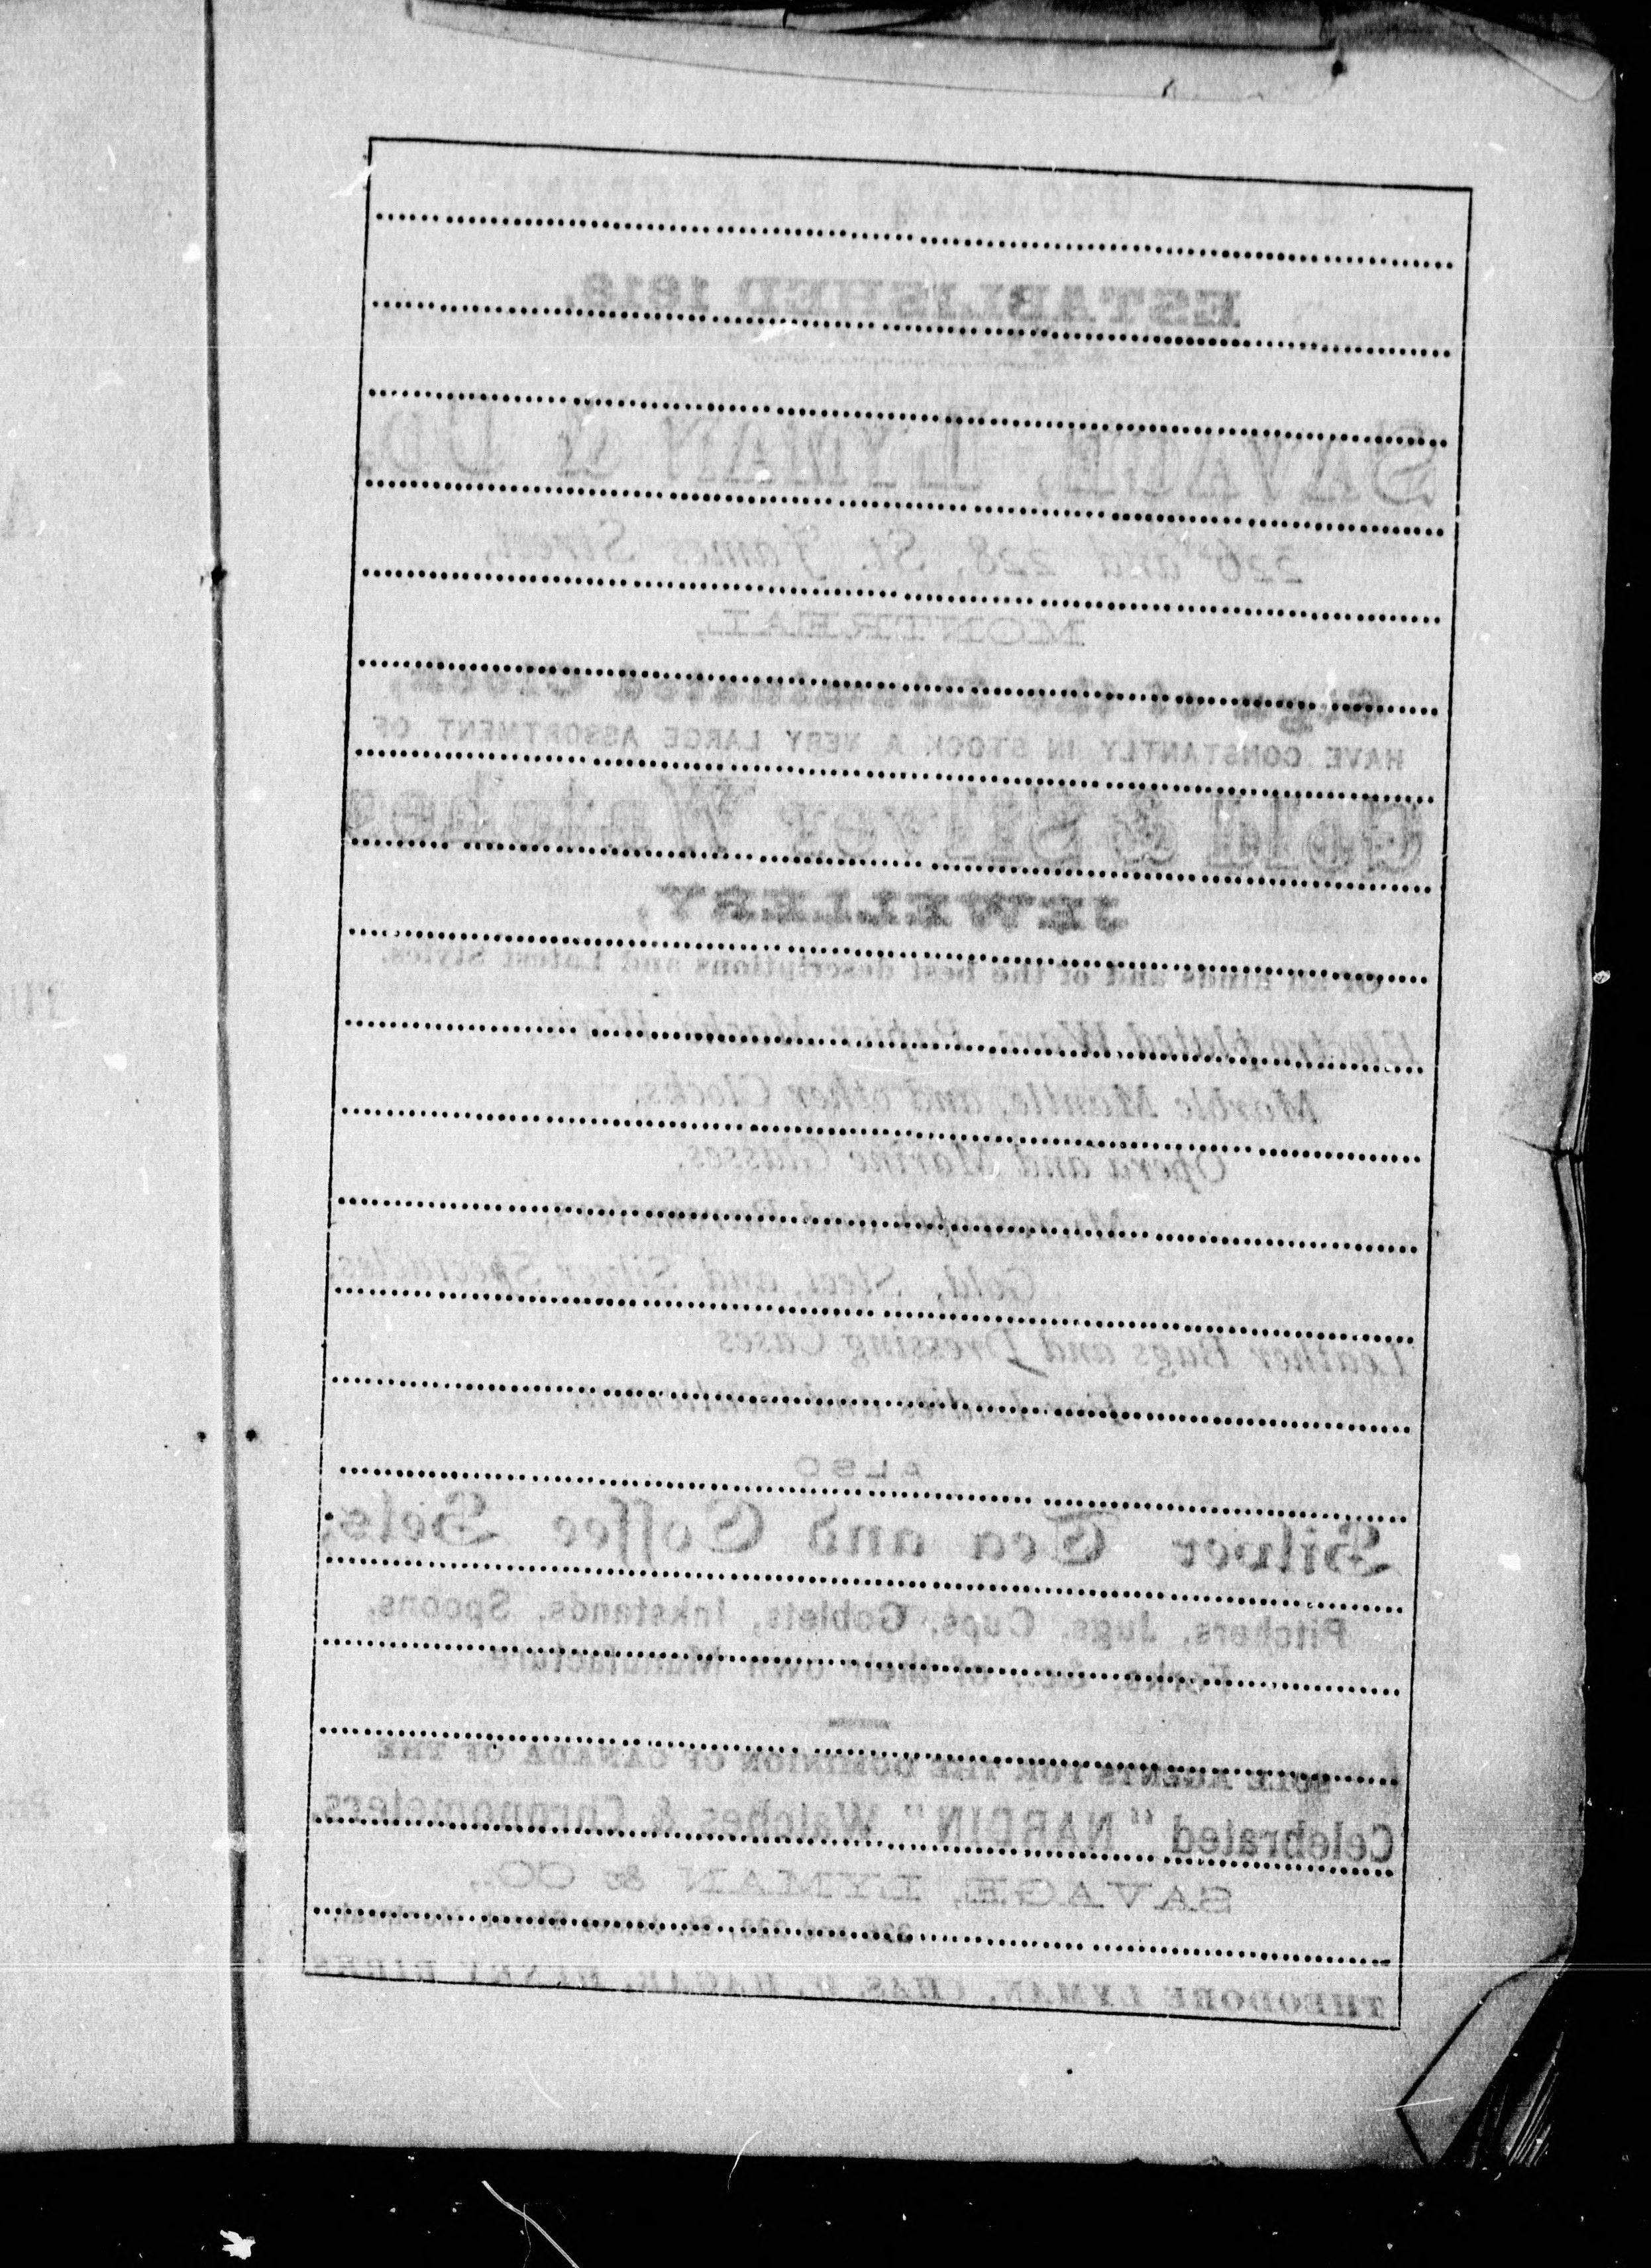 ESTABLISHED 1818.
SAVAGE, LYMAN & CO.
226 and 228, St. James Street,
MONTREAL,
Sign of the Illuminated Clock,
HAVE CONSTANTLY IN STOCK A VERY LARGE ASSORTMENT OF
Gold & Silver Watches
JEWELLERY,
Of all kinds and of the best descriptions and Latest Styles.
Electro plated Ware, Papier Mache
Marble Mantle, and other Clocks,
Opera and Marine Glasses,
Gold, Steel, and Silver Spectacles,
Leather Bags and Dressing Cases
For Ladies and Gentlemen.
ALSO
Silver Tea and Coffee Sets,
Pitchers, Jugs, Cups, Goblets, Inkstands, Spoons,
Forks, &c., of their own Manufacture.
SOLE AGENTS FOR THE DOMINION OF CANADA OF THE
Celebrated "NARDIN" Watches & Chronometers.
SAVAGE, LYMAN & CO.,
226 and 228, St. James Street, Montreal.
THEODORE LYMAN, CHAS. W. HAGAR, HENRY BIRKS.